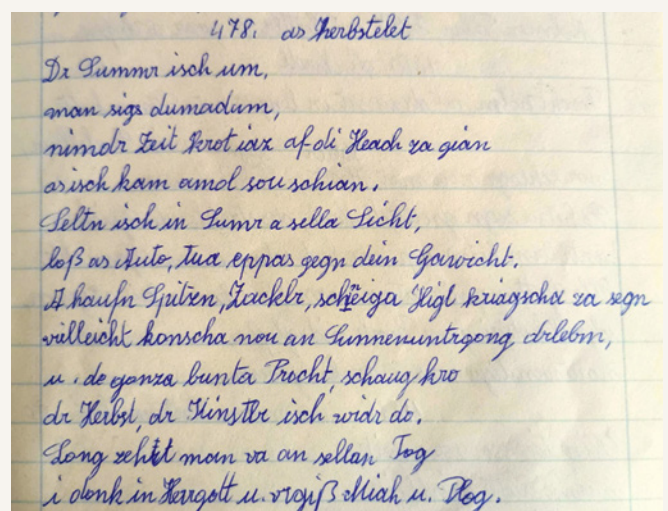 478. as Herbstelet
Dr Summr isch um,
man sigs dumadum,
nimdr Zeit krot iaz af di Heach za gian
asisch kam amol sou schian.
Seltn isch in Sumr a sella Sicht,
loß as Auto, tua eppas gegn dein Gewicht.
A haufn Spitzn, Zacklr, scheiga Higl kriagscha za segn
villeicht konscha nou an Sunnenuntrgong drlebm,
u. de gonza bunta Procht, schaug kro
dr Herbst, dr Kinstlr isch widr do.
Long zehrt man va an sellan Tog
i donk in Herrgott u. vrgiß Miah u. Plog.